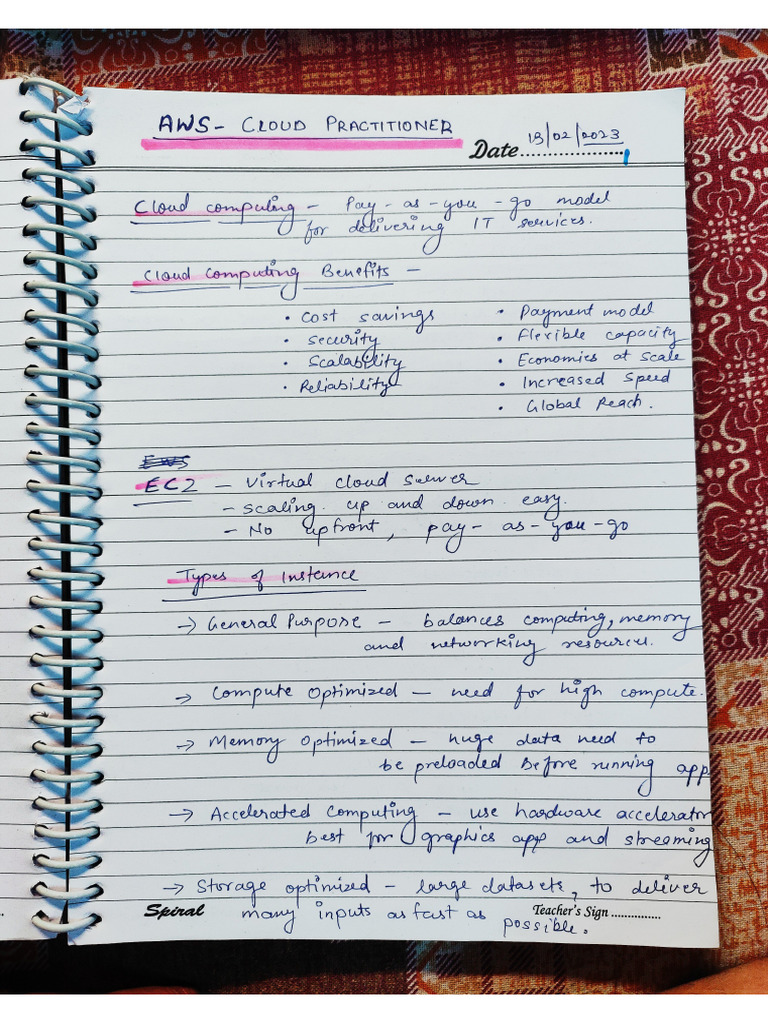 AWS - CLOUD PRACTITIONER
Date 19/02/2023
Cloud computing - Pay-as-you-go model
for delivering IT services.
Cloud Computing Benefits -
• Cost savings
• Security
• Scalability
• Reliability
• Payment model
• Flexible capacity
• Economies at scale
• Increased Speed
• Global Reach.
EC2 - Virtual cloud server
- Scaling up and down easy.
- No upfront, pay-as-you-go
Types of Instance
→ General Purpose - balances computing, memory
and networking resources.
→ Compute Optimized - need for high compute.
→ Memory Optimized - huge data need to
be preloaded before running app
→ Accelerated Computing - use hardware accelerator
best for graphics app and streaming
→ Storage optimized - large datasets, to deliver
many inputs as fast as possible.
Spiral
Teacher's Sign